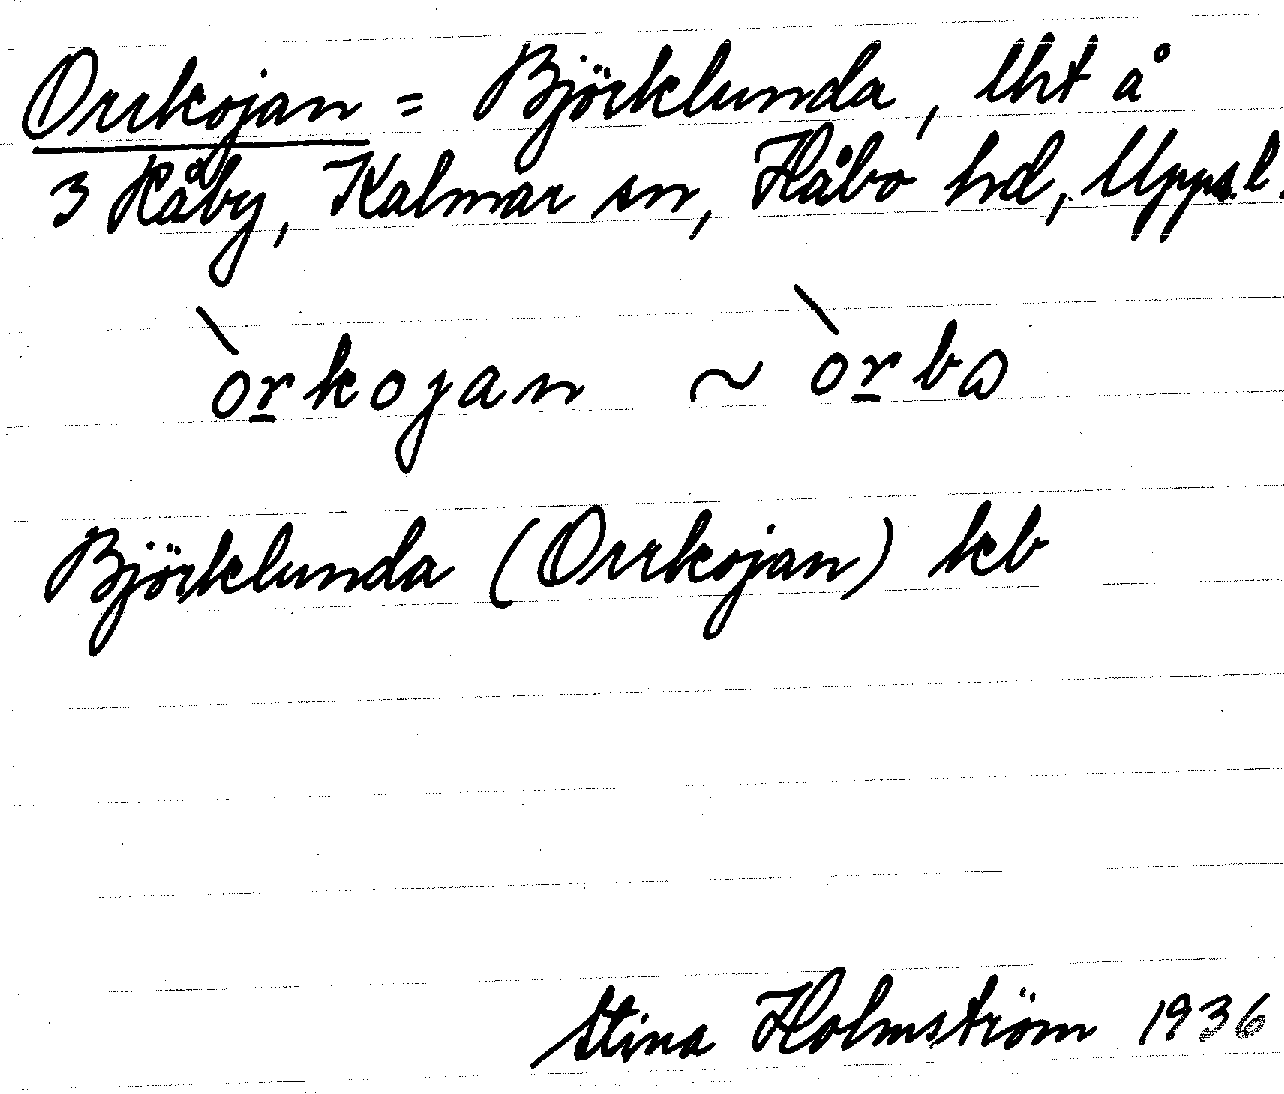 Orrkojan = Björklunda, lht å
3 Håby, Kalmar sn, Håbo hd, Uppsl.
òrkojan ~ òrbo
Björklunda (Orrkojan) kb
Stina Holmström 1936